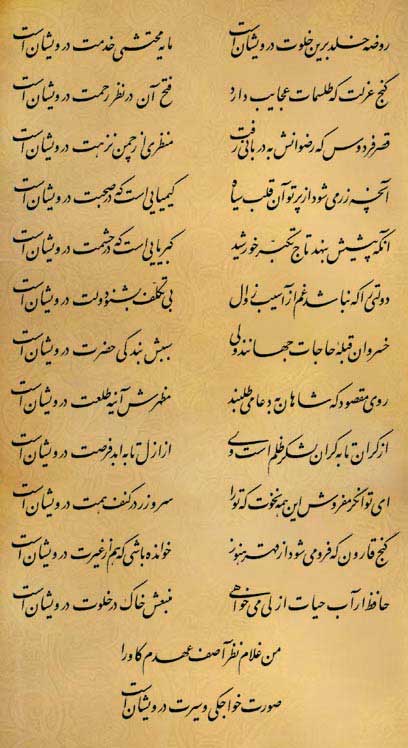 روضه خلد برین خلوت درویشان است مایه محتشمی خدمت درویشان است
کنج عزلت که طلسمات عجایب دارد فتح آن در نظر رحمت درویشان است
قصر فردوس که رضوانش به دربانی رفت منظری از چمن نزهت درویشان است
آنچه زر می شود از پرتو آن قلب سیاه کیمیایی است که در صحبت درویشان است
آنکه پیشش بنهد تاج تکبر خورشید کبریایی است که در حشمت درویشان است
دولتی را که نباشد غم از آسیب زوال بی تکلف بشنو دولت درویشان است
خسروان قبله حاجات جهانند ولی سببش بندگی حضرت درویشان است
روی مقصود که شاهان به دعا می طلبند مظهرش آینه طلعت درویشان است
از کران تا به کران لشکر ظلم است ولی از ازل تا به ابد فرصت درویشان است
ای توانگر مفروش این همه نخوت که تو را سر و زر در کنف همت درویشان است
گنج قارون که فرو می شود از قهر هنوز خوانده باشی که هم از غیرت درویشان است
حافظ ار آب حیات ازلی می خواهی منبعش خاک در خلوت درویشان است
من غلام نظر آصف عهدم کاو را
صورت خواجگی و سیرت درویشان است